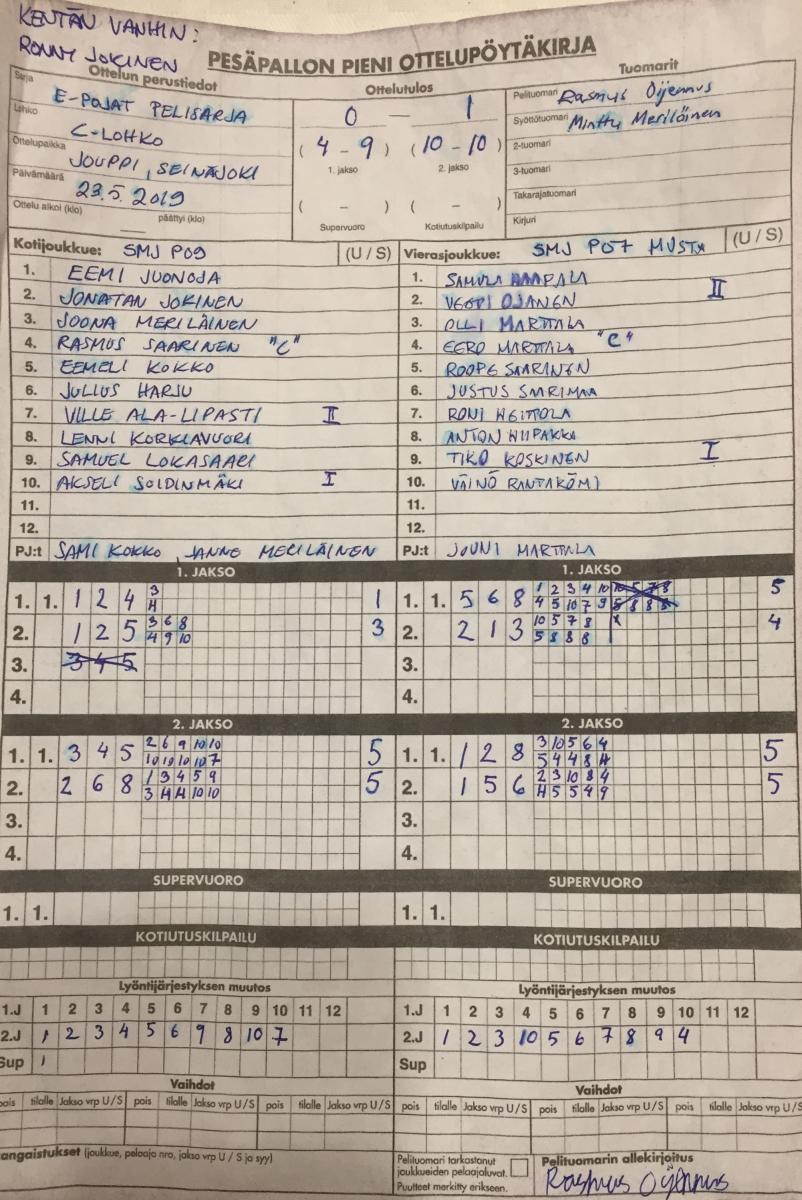 KENTÄN VANHIN:
RONNY JOKINEN
PESÄPALLON PIENI OTTELUPÖYTÄKIRJA
Ottelun perustiedot
Ottelutulos
Tuomarit
Sarja E-POJAT PELISARJA
Lohko C-LOHKO
Ottelupaikka JOUPPI, SEINÄJOKI
Päivämäärä 23.5.2019
Ottelu alkoi (klo) — päättyi (klo)
0 — 1
(4 - 9) (10 - 10)
1. jakso 2. jakso
( - ) ( - )
Supervuoro Kotiutuskilpailu
Pelituomari Rasmus Oijennus
Syöttötuomari Minttu Meriläinen
2-tuomari
3-tuomari
Takarajatuomari
Kirjuri
Kotijoukkue: SMJ P09 (U / S)
1. EEMI JUONOJA
2. JONATAN JOKINEN
3. JOONA MERILÄINEN
4. RASMUS SAARINEN "C"
5. EEMELI KOKKO
6. JULIUS HARJU
7. VILLE ALA-LIPASTI II
8. LENNI KORKIAVUORI
9. SAMUEL LOKASAARI
10. AKSELI SOIDINMÄKI I
11.
12.
PJ:t SAMI KOKKO, JANNE MERILÄINEN
Vierasjoukkue: SMJ P07 MUSTA (U / S)
1. SAMULI HAAPALA
2. VEETI OJANEN II
3. OLLI MARTTALA
4. EERO MARTTALA "C"
5. ROOPE SAARINEN
6. JUSTUS SAARIMAA
7. RONI
8. ANTON
9. TIKO KOSKINEN I
10. VÄINÖ
11.
12.
PJ:t JOUNI MARTTALA
1. JAKSO
1. 1. 1 2 4 3 1
4
2. 1 2 5 3 6 8 3
4 9 10
3. 3 4 5
4.
1. JAKSO
1. 1. 5 6 8 1 2 3 4 10 10 5 7 8 5
4 5 10 7 9 5 8 8 8
2. 2 1 3 10 5 7 8 x 4
5 8 8 8
3.
4.
2. JAKSO
1. 1. 3 4 5 2 6 9 10 10 5
10 10 10 10 7
2. 2 6 8 1 3 4 5 9 5
3 4 4 10 10
3.
4.
2. JAKSO
1. 1. 1 2 8 3 10 5 6 4 5
5 4 4 8 4
2. 1 5 6 2 3 10 8 4 5
4 5 5 4 9
3.
4.
SUPERVUORO
1. 1.
SUPERVUORO
1. 1.
KOTIUTUSKILPAILU
KOTIUTUSKILPAILU
Lyöntijärjestyksen muutos
1.J 1 2 3 4 5 6 7 8 9 10 11 12
2.J 1 2 3 4 5 6 9 8 10 7
Sup 1
Lyöntijärjestyksen muutos
1.J 1 2 3 4 5 6 7 8 9 10 11 12
2.J 1 2 3 10 5 6 7 8 9 4
Sup
Vaihdot
pois tilalle Jakso vrp U / S pois tilalle Jakso vrp U / S pois tilalle Jakso vrp U / S
Vaihdot
pois tilalle Jakso vrp U / S pois tilalle Jakso vrp U / S pois tilalle Jakso vrp U / S
angaistukset (joukkue, pelaaja nro, jakso vrp U / S ja syy)
Pelituomari tarkastanut
joukkueiden pelaajaluvat.
Puutteet merkitty erikseen.
Pelituomarin allekirjoitus
Rasmus Oijennus